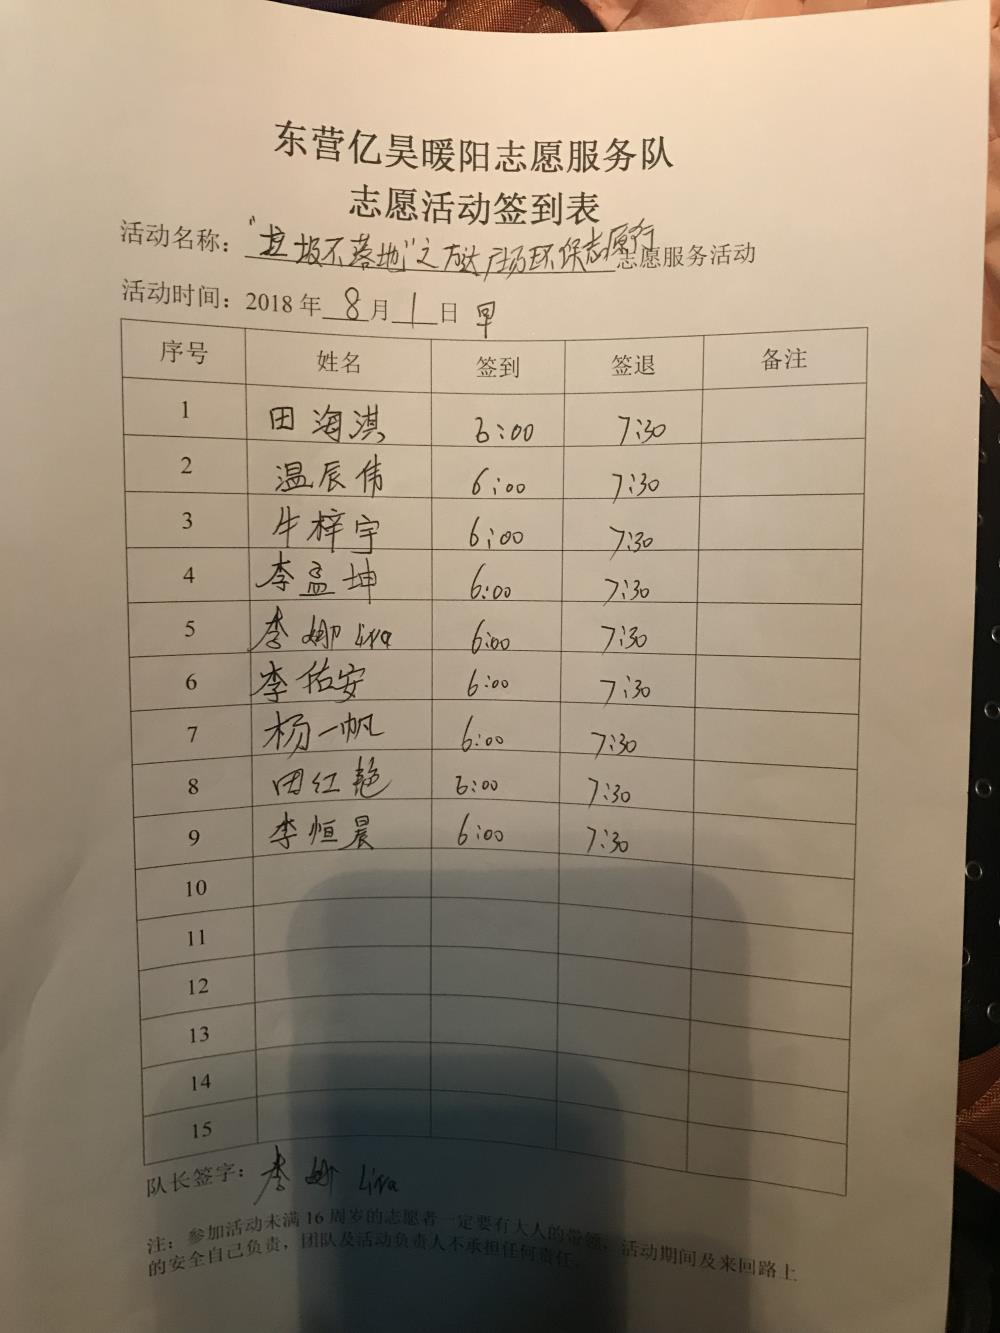 东营亿昊暖阳志愿服务队
志愿活动签到表
活动名称："垃圾不落地"之万达广场环保志愿行志愿服务活动
活动时间：2018年8月1日 早
序号 姓名 签到 签退 备注
1 田海淇 6:00 7:30
2 温辰伟 6:00 7:30
3 牛梓宇 6:00 7:30
4 李孟坤 6:00 7:30
5 李娜 lina 6:00 7:30
6 李佑安 6:00 7:30
7 杨一帆 6:00 7:30
8 田红艳 6:00 7:30
9 李恒晨 6:00 7:30
10
11
12
13
14
15
队长签字：李娜 lina
注：参加活动未满16周岁的志愿者一定要有大人的带领，活动期间及来回路上
的安全自己负责，团队及活动负责人不承担任何责任。